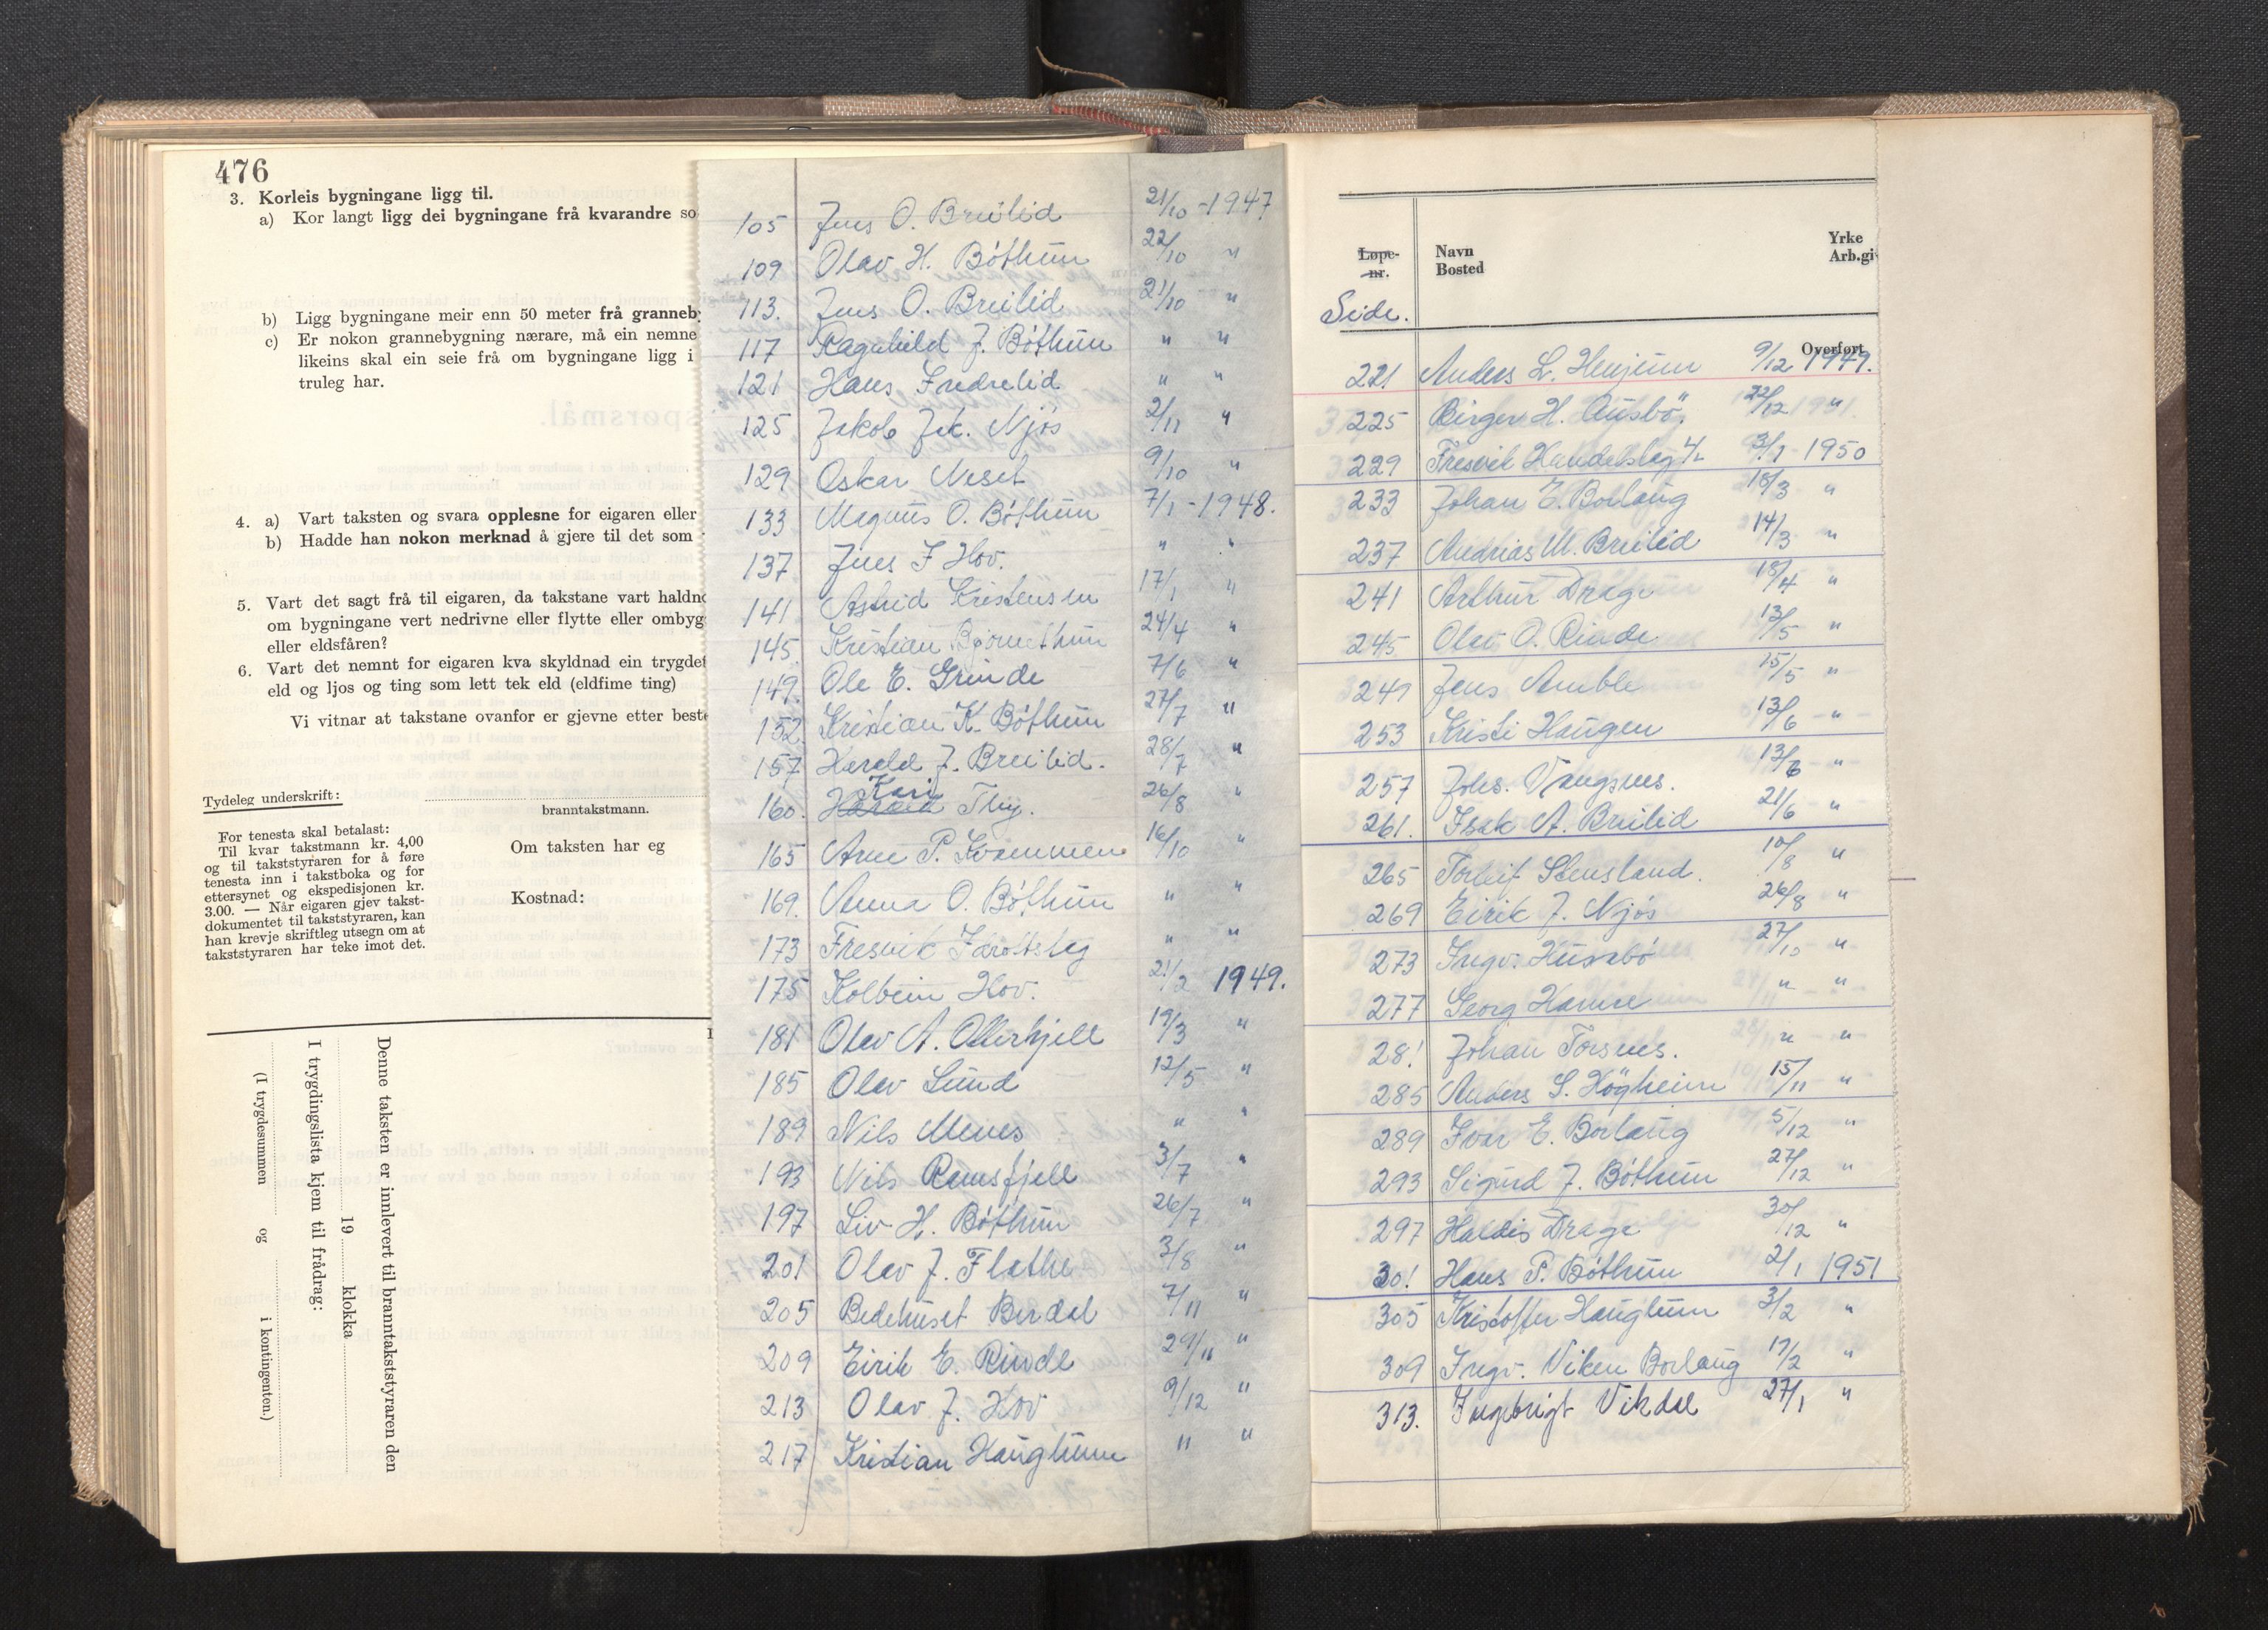 476
3. Korleis bygningane ligg til.
a) Kor langt ligg dei bygningane frå kvarandre so
b) Ligg bygningane meir enn 50 meter frå granneby
c) Er nokon grannebygning nærare, må ein nemne
likeins skal ein seie frå om bygningane ligg i
truleg har.
4. a) Vart taksten og svara opplesne for eigaren eller
b) Hadde han nokon merknad å gjere til det som
5. Vart det sagt frå til eigaren, da takstane vart haldne
om bygningane vert nedrivne eller flytte eller ombyg
eller eldsfåren?
6. Vart det nemnt for eigaren kva skyldnad ein trygdet
eld og ljos og ting som lett tek eld (eldfime ting)
Vi vitnar at takstane ovanfor er gjevne etter beste
Tydeleg underskrift:
branntakstmann.
For tenesta skal betalast:
Til kvar takstmann kr. 4,00
og til takststyraren for å føre
tenesta inn i takstboka og for
ettersynet og ekspedisjonen kr.
3.00. — Når eigaren gjev takst-
dokumentet til takststyraren, kan
han krevje skriftleg utsegn om at
takststyraren har teke imot det.
Om taksten har eg
Kostnad:
Denne taksten er innlevert til branntakststyraren den
19 klokka
I trygdingslista kjem til frådrag:
(I trygdesummen og i kontingenten.)
105 Jens O. Breilid 21/10 - 1947
109 Olav H. Bøthun 22/10 "
113. Jens O. Breilid 21/10 "
117 Ragnhild J. Bøthun " "
121 Hans Fredrelid " "
125 Jakob Jak. Njøs 2/11 "
129 Oskar Neset 9/10 "
133 Magnus O. Bøthun 7/1 - 1948.
137 Jens J Hov. " "
141 Astrid Kristensen 17/1 "
145. Kristian Bjørnethun 24/4 "
149. Ole E. Grinde 7/6 "
152 Kristian K. Bøthun 27/7 "
157 Harald J. Breilid. 28/7 "
Kari
160. Thy. 26/8 "
165 Arne P. Kvammen 16/10 "
169. Anna O. Bøthun " "
173 Fresvik Idrottslag " "
175 Kolbein Hov. 21/2 1949.
181 Olav A. Otterhjell 19/3 "
185 Olav Lund 12/5 "
189 Nils Menes " "
193 Nils Ramsfjell 3/7 "
197 Liv H. Bøthun 26/7 "
201 Olav J. Flathe 3/8 "
205 Bedehuset Berdal 7/11 "
209 Eirik E. Rinde 29/11 "
213 Olav J. Hov 9/12 "
217 Kristian Hauglum " "
Løpe-
nr.
Navn
Bosted
Yrke
Arb.giv
Side.
Overført
221 Anders L. Henjum 9/12 1949.
225 Birger H. Husbø. 22/12 "
229 Fresvik Handelslag A/L 3/1 - 1950
233 Johan E. Borlaug 18/3 "
237 Andrias M. Breilid 14/3 "
241 Arthur Drage 18/4 "
245 Olav O. Rinde 13/5 "
249 Jens Amble 15/5 "
253 Kristi Haugen 13/6 "
257 Johs. Vangsnes. 13/6 "
261. Isak A. Breilid 21/6 "
265 Torleif Stensland. 10/8 "
269 Eirik J. Njøs 26/8 "
273 Ingv. Husabø 27/10 "
277 Georg Hamre " "
281 Johan Torsnes. " "
285 Anders S. Högheim 15/11 "
289 Ivar E. Borlaug 5/12 "
293 Sigurd J. Bøthun 27/12 "
297 Haldis Drage 30/12 "
301 Hans P. Bøthun 2/1 1951
305 Kristoffer Hauglum 3/2 "
309 Ingv. Viken Borlaug 17/2 "
313. Ingebrigt Vikdal 27/1 "